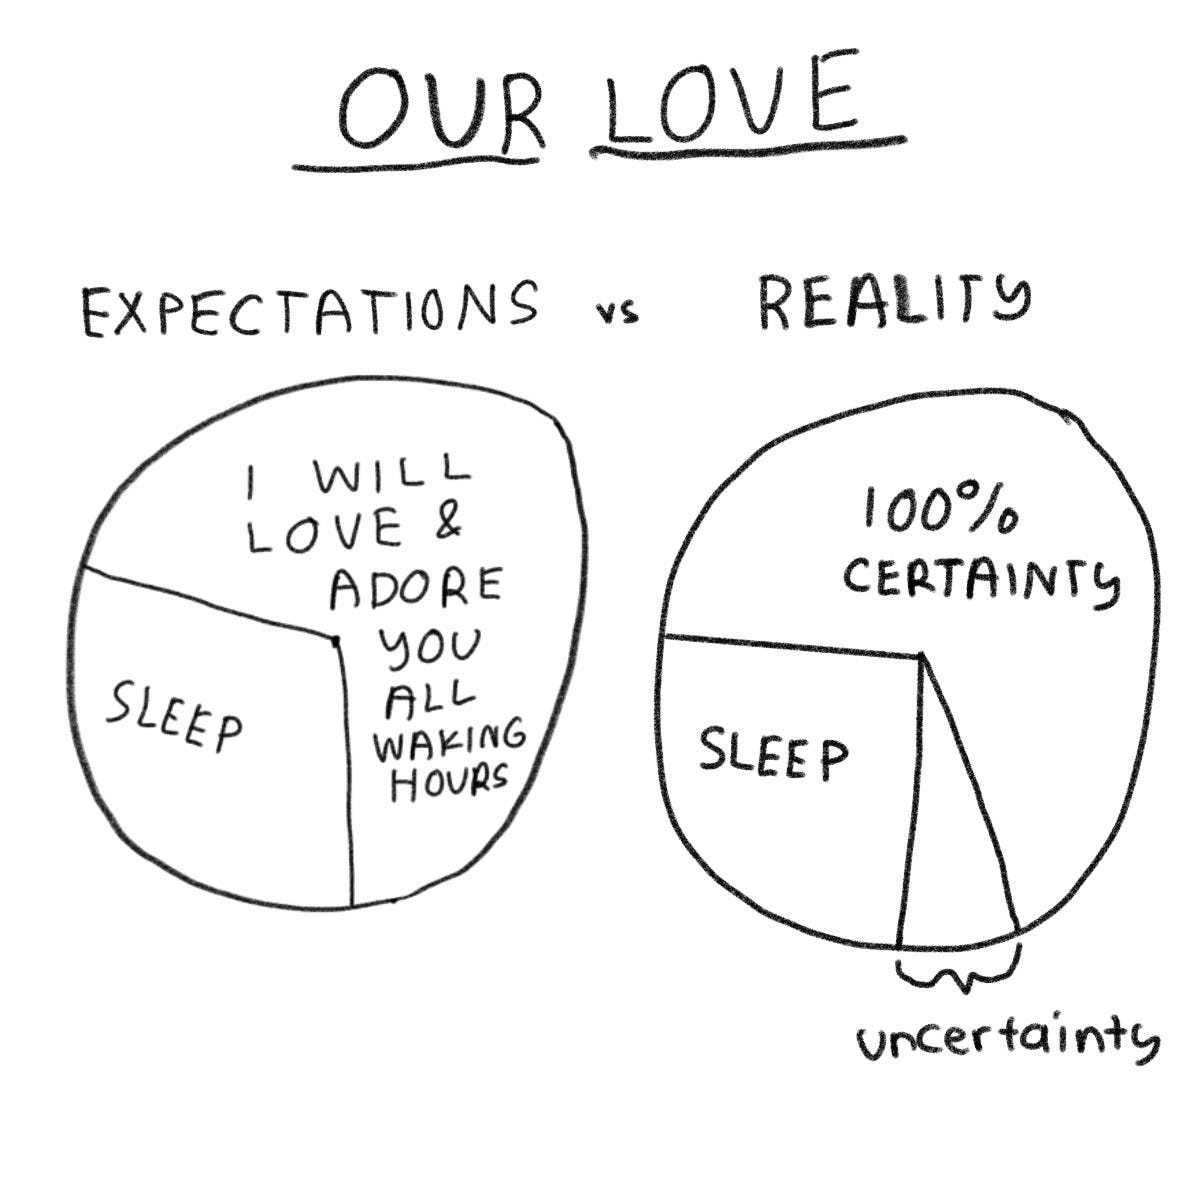 OUR LOVE
EXPECTATIONS vs REALITY
I WILL
LOVE &
ADORE
YOU
ALL
WAKING
HOURS
SLEEP
100%
CERTAINTY
SLEEP
uncertainty